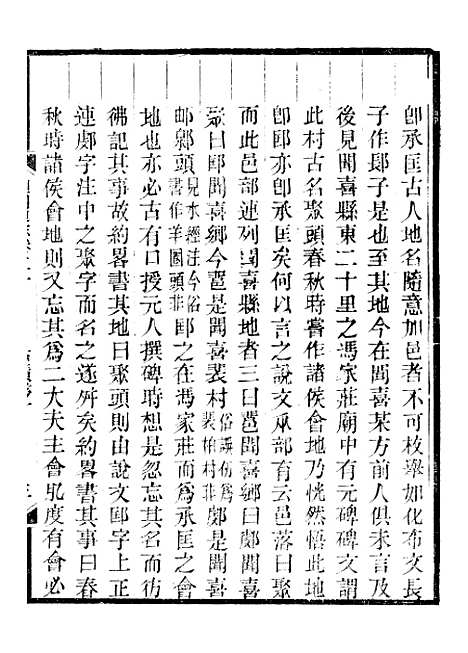 卽承匡古人地名隨意加邑者不可枚舉如化布文長
子作郞子是也至其地今在聞喜某方前人俱未言及
後見聞喜縣東二十里之馮家莊廟中有元碑碑文謂
此村古名聚頭春秋時嘗作諸侯會地乃恍然悟此地
卽邼亦卽承匡矣何以言之說文㐺部有云邑落曰聚
而此邑部連列聞喜縣地者三曰䣙聞喜鄉曰鄥聞喜
聚曰邼聞喜鄉今䣙是聞喜裴村俗譌仿爲裴柏村非鄥是聞喜
邮鄥頭見水經注今俗書作羊圈頭非邼之爲馮家莊而爲承匡之會
地也亦必古有口授元人撰碑時想是忽忘其名而彷
彿記其事故約畧書其地曰聚頭則由說文邼字上正
連鄥字注中之聚字而名之遂舛矣約畧書其事曰春
秋時諸侯會地則又忘其爲二大夫主會臥度有會必